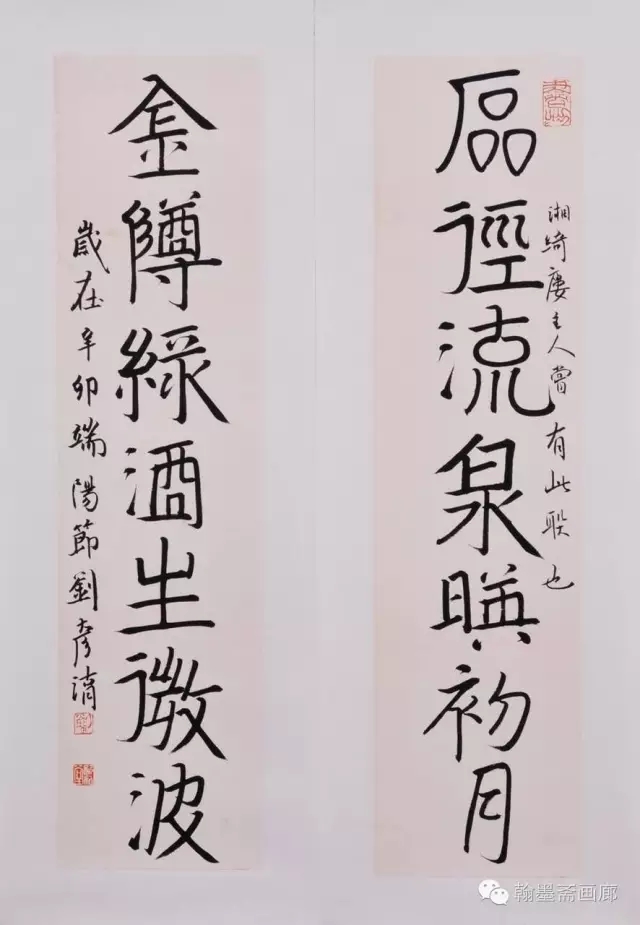 徑流泉暎初月
湘綺廔主人嘗有此联也
金綠酒生微波
歲在辛卯端陽節劉彥湖
翰墨斋画廊